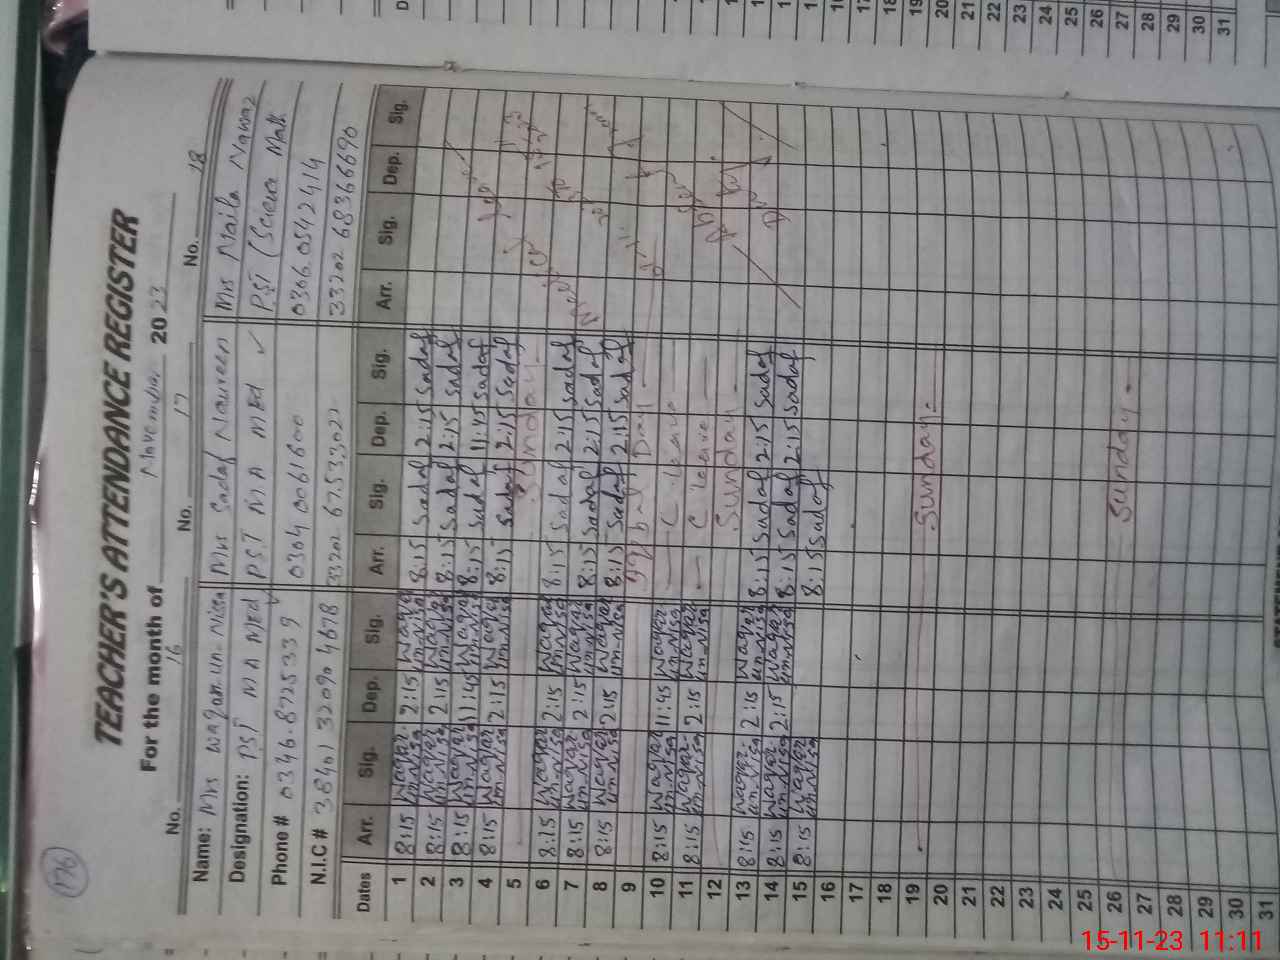 176
TEACHER'S ATTENDANCE REGISTER
For the month of November 2023
No. 16 No. 17 No. 18
Name: Mrs Waqar un-Nissa Mrs Sadaf Naureen Mrs Naila Nawaz
Designation: PST M A MEd PST M A MEd ✓ PST (Science Math
Phone # 0346.8725339 0304 0061600 0306.0542414
N.I.C # 38401 320904678 33202 6836669 0
Dates Arr. Sig. Dep. Sig. Arr. Sig. Dep. Sig. Arr. Sig. Dep. Sig.
1 8:15 Waqar un-Nisa 2:15 Waqar un-Nisa 8:15 Sadaf 2:15 Sadaf
2 8:15 Waqar un-Nisa 2:15 Waqar un-Nisa 8:15 Sadaf 2:15 Sadaf
3 8:15 Waqar un-Nisa 11:45 Waqar un-Nisa 8:15 Sadaf 11:45 Sadaf
4 8:15 Waqar un-Nisa 2:15 Waqar un-Nisa 8:15 Sadaf 2:15 Sadaf
5 Sunday
6 8:15 Waqar un-Nisa 2:15 Waqar un-Nisa 8:15 Sadaf 2:15 Sadaf
7 8:15 Waqar un-Nisa 2:15 Waqar un-Nisa 8:15 Sadaf 2:15 Sadaf
8 8:15 Waqar un-Nisa 2:15 Waqar un-Nisa 8:15 Sadaf 2:15 Sadaf
9 Iqbal Day
10 8:15 Waqar un-Nisa 11:45 Waqar un-Nisa C. leave
11 8:15 Waqar un-Nisa 2:15 Waqar un-Nisa C leave
12 Sunday
13 8:15 Waqar un-Nisa 2:15 Waqar un-Nisa 8:15 Sadaf 2:15 Sadaf
14 8:15 Waqar un-Nisa 2:15 Waqar un-Nisa 8:15 Sadaf 2:15 Sadaf
15 8:15 Waqar un-Nisa 8:15 Sadaf
16
17
18
19 Sunday
20
21
22
23
24
25
26 Sunday
27
28
29
30
31
15-11-23 11:11